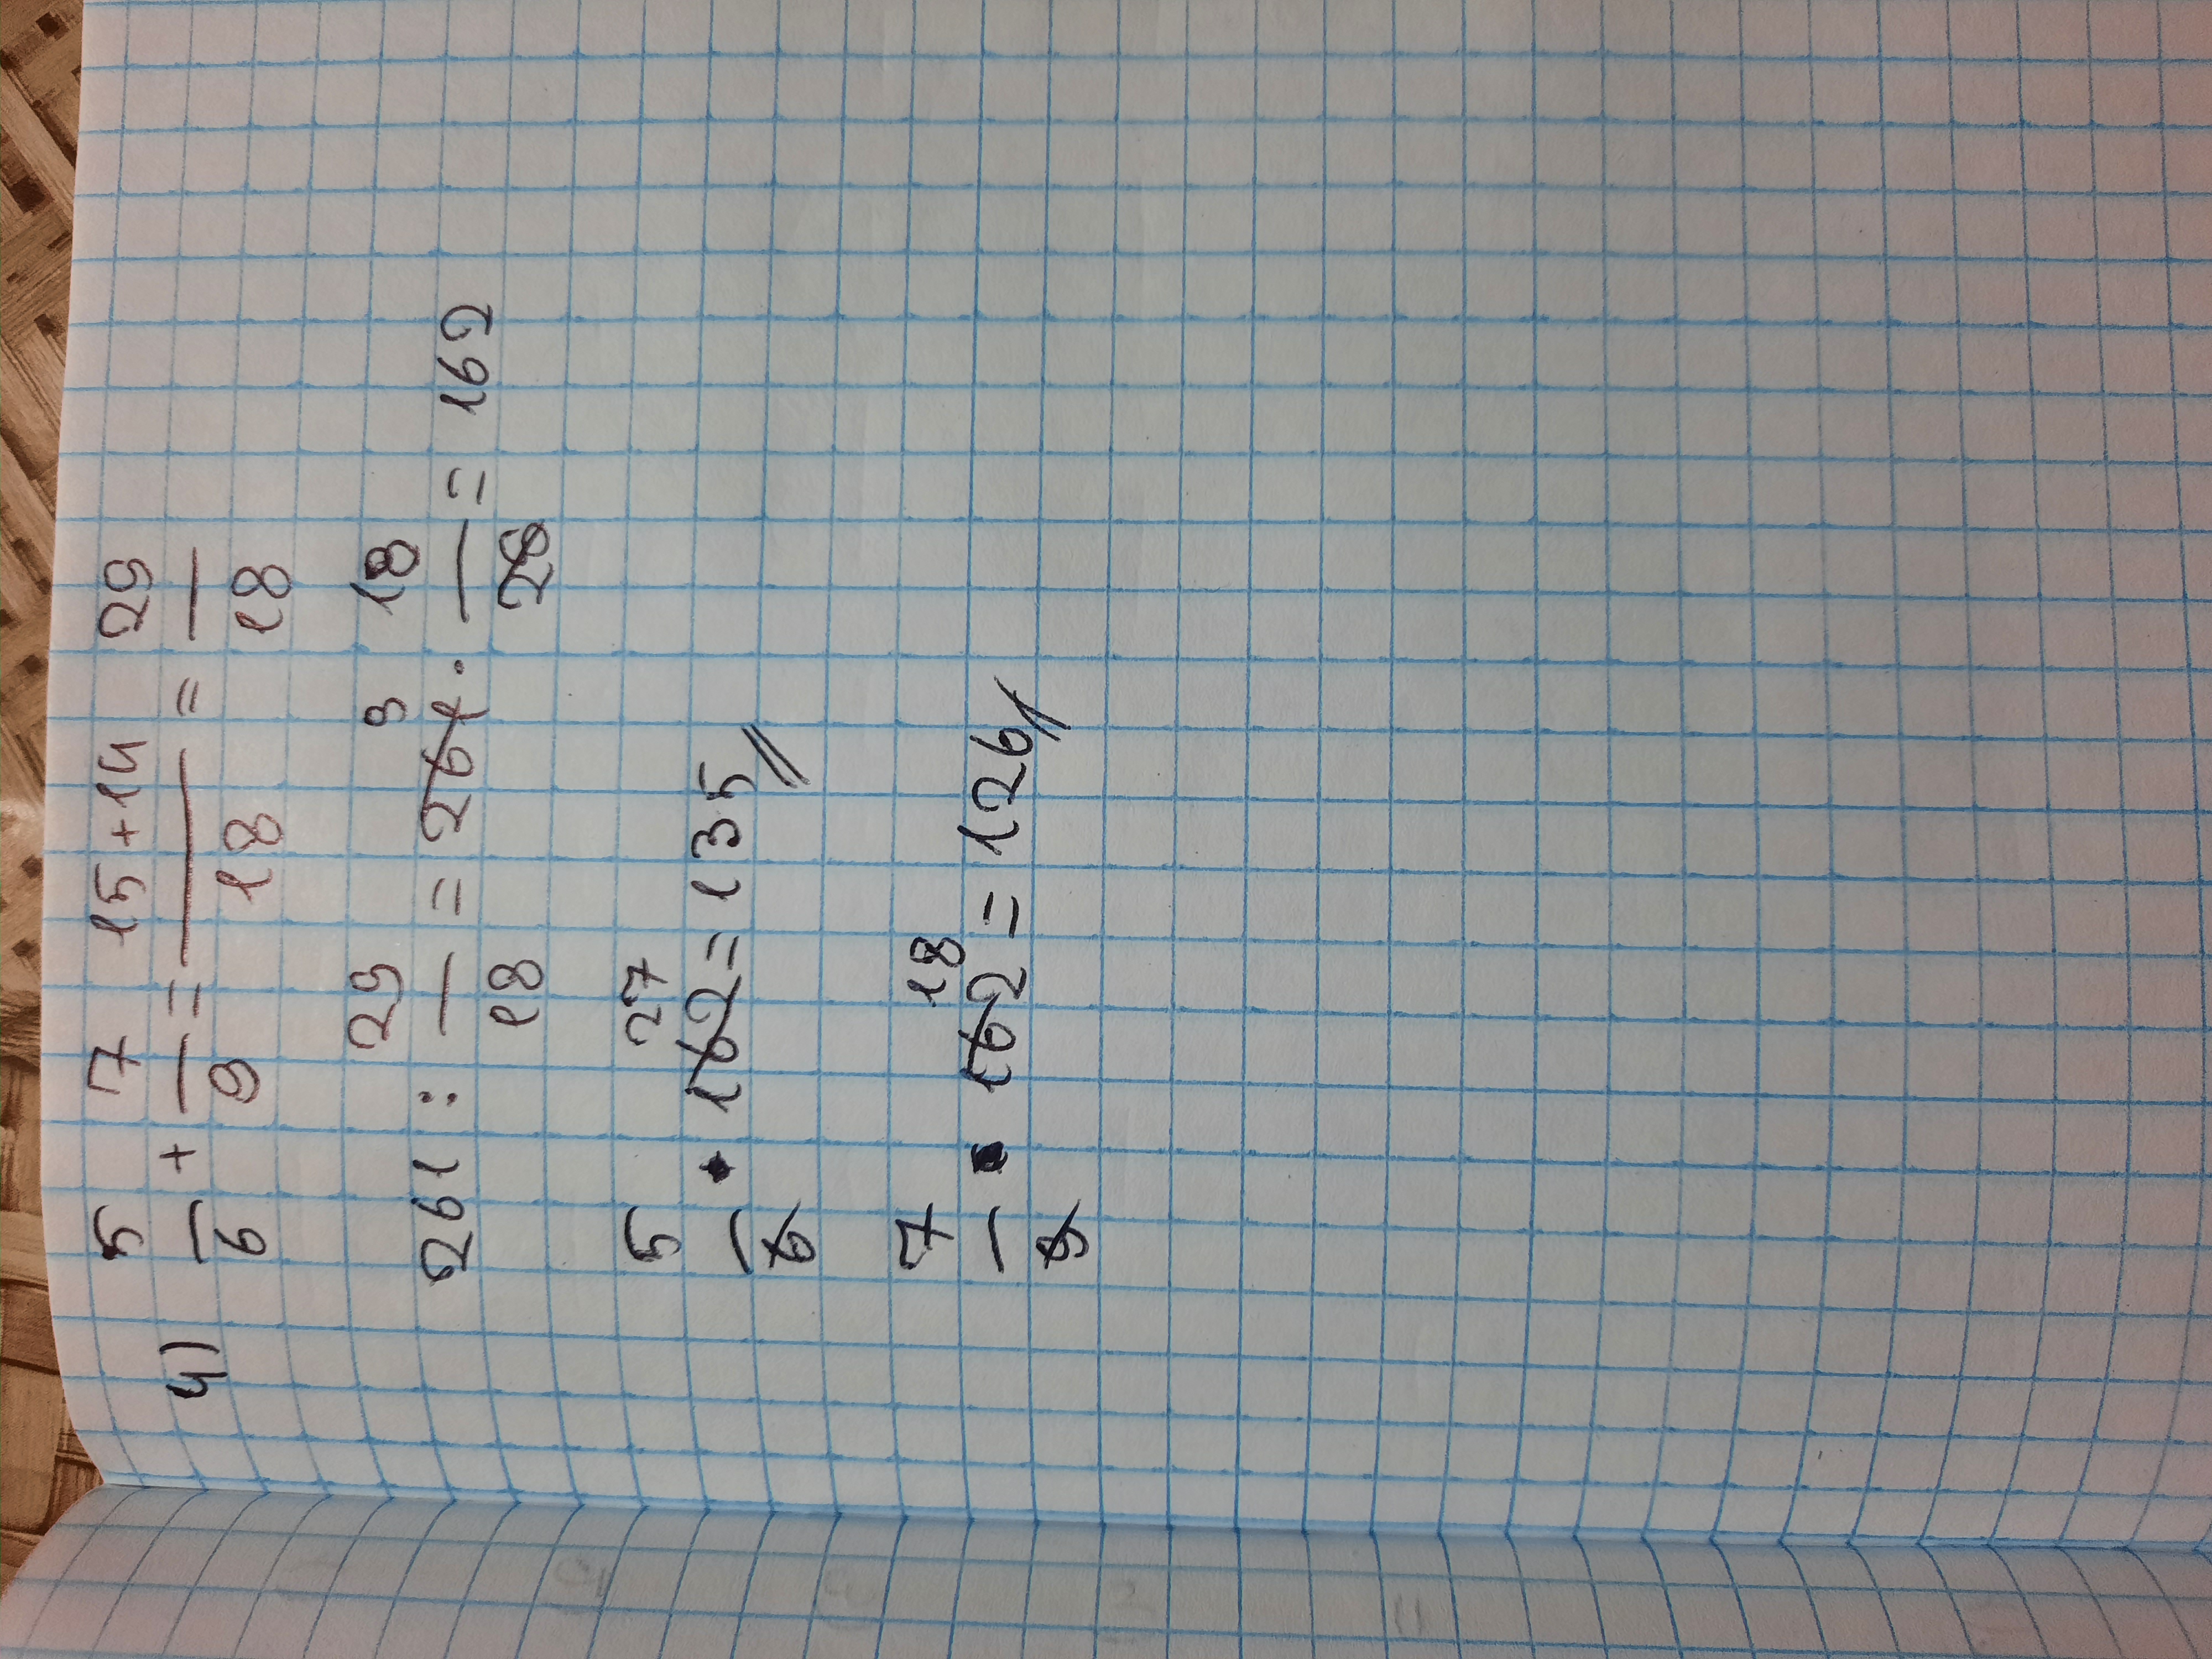 4) 5/6 + 7/9 = 15+14/18 = 29/18
261 : 29/18 = 261 9 · 18/29 = 162
5/6 · 162 27 = 135//
7/9 · 162 18 = 126//